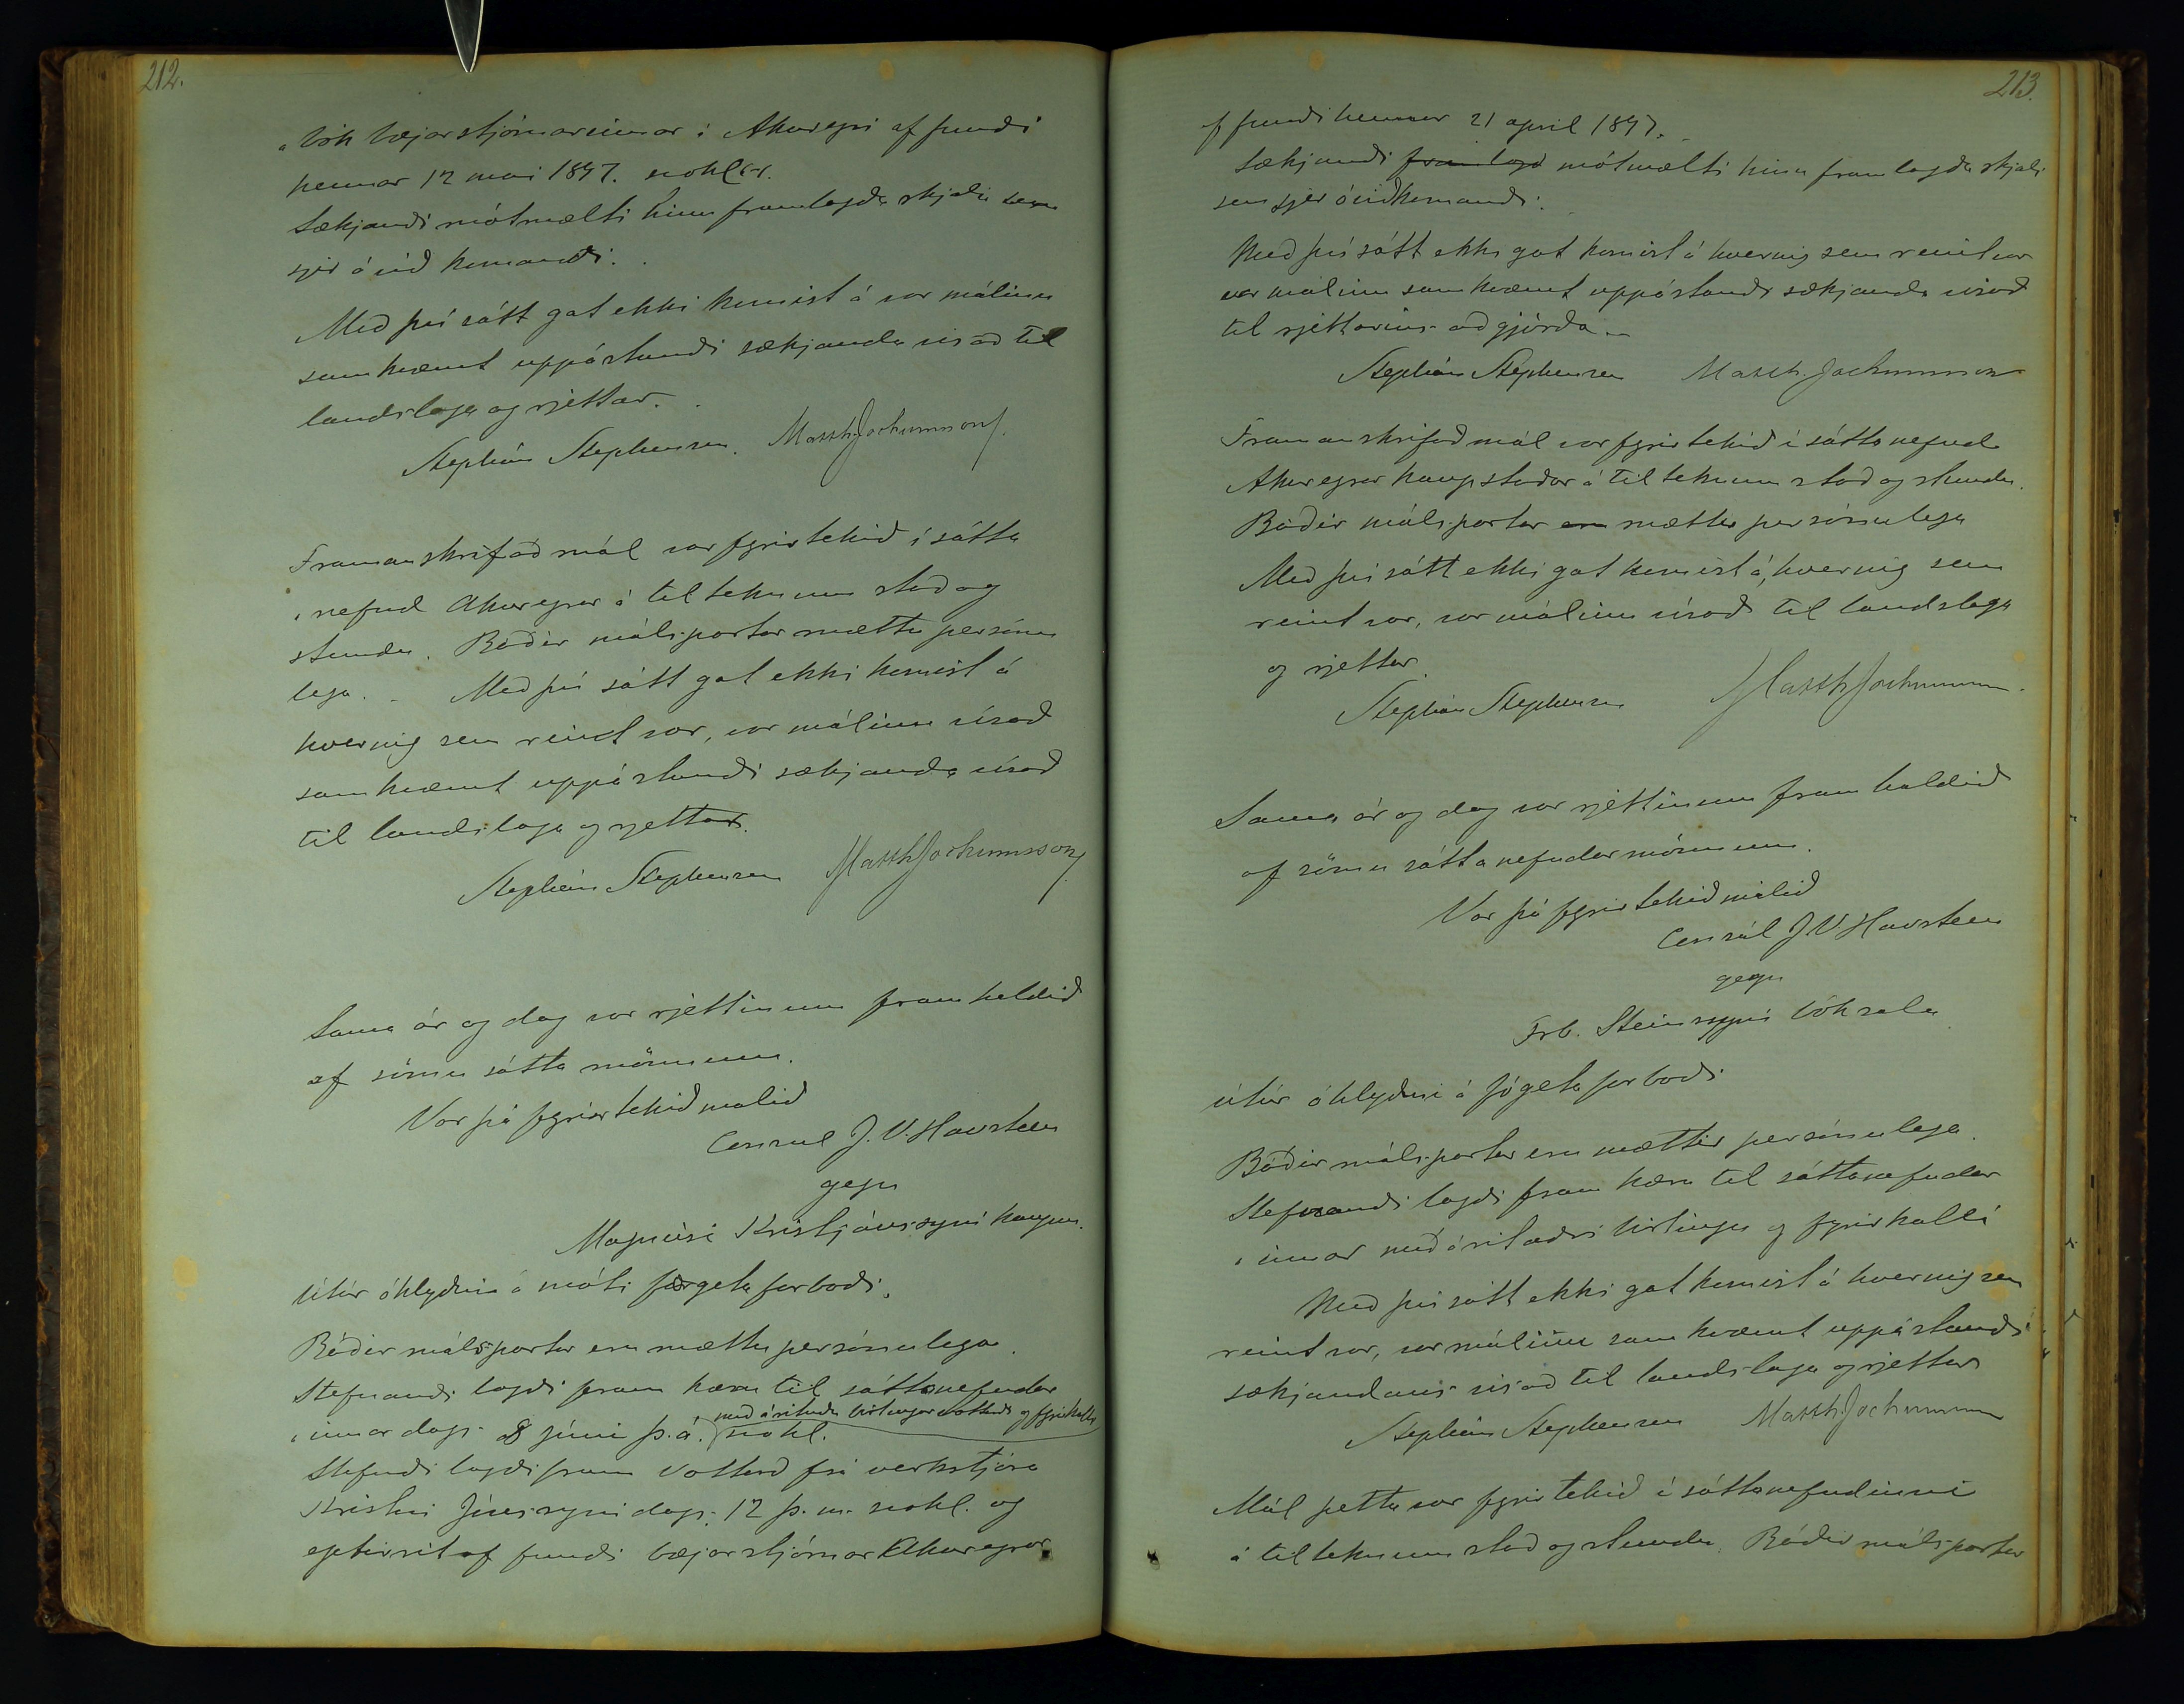 212.
bók bæjarstjórnarinnar á Akureyri af fundi
hennar 12 mai 1897. nohlrr.
Sækjandi mótmælti hinu framlagða skjali sem
sjer óviðkomandi.
Með því sátt gat ekki komist á var málinu
samkvæmt uppástandi sækjanda vísað til
landslaga og rjettar.
Stephán Stephensen. Matth Jochumsson
Framanskrifað mál var fyrirtekið í sátta
nefnd Akureyrar á tilteknum stað og
stundu. Báðir málspartar mættu persónu
lega. Með því sátt gat ekki komist á
hvernig sem reint var, var málinu vísað
samkvæmt uppástandi sækjanda vísað
til landslaga og rjettar.
Stephán Stephensen Matth Jochumsson
Sama ár og dag var rjettinum framhaldið
af sömu sátta mönnum.
Var þá fyrirtekið málið
Consul J. V. Havsteen
gegn
Magnúsi Kristjánssyni kaupm.
Útúr óhlyðni á móti fógeta forboði.
Báðir málspartar eru mættir persónulega.
Stefnandi lagði fram kæru til sáttanefndar
innar dags. 8 júní þ. á. nohl.
með árituðu birtingarvottorði og fyrirkalli
Stefndi lagði fram vottorð frá verkstjóra
Kristni Jónssyni dags. 12 þ. m. nohl. og
eptirrit af fundi bæjarstjórnar Akureyrar
213.
af fundi hennar 21 april 1897.
Sækjandi framlagd mótmælti hinu framlagða skjali
sem sjer óviðkomandi.
Með því sátt ekki gat komist á hvernig sem reint var
var málinu samkvæmt uppástandi sækjanda vísað
til rjettarins aðgjörða.
Stephán Stephensen Matth. Jochumsson
Framanskrifað mál var fyrirtekið í sáttanefnd
Akureyrar kaupstaðar á tilteknum stað og stundu.
Báðir málspartar eru mættir persónulega
Með því sátt ekki gat komist á, hvernig sem
reint var, var málinu vísað til landslaga
og rjettar.
Stephán Stephensen Matth Jochumsson.
Sama ár og dag var rjettinum framhaldið
af sömu sáttanefndarmönnum.
Var þá fyrirtekið málið
Consúl J V Havsteen
gegn
Frb. Steinssyni bóksala
útúr óhlyðni á fógeta forboði
Báðir málspartar eru mættir persónulega.
Stefnandi lagði fram kæru til sáttanefndar
innar með áritaðri birtingu og fyrirkalli
Með því sátt ekki gat komist á hvernig sem
reint var, var málinu samkvæmt uppástandi
sækjandans vísað til landslaga og rjettar
Stephán Stephensen Matth. Jochumsson
Mál þetta var fyrirtekið í sáttanefndinni
á tilteknum stað og stundu. Báðir málspartar